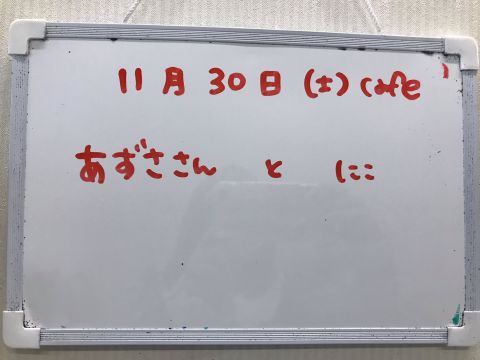 11月30日(土)cafe
あずささん と にこ